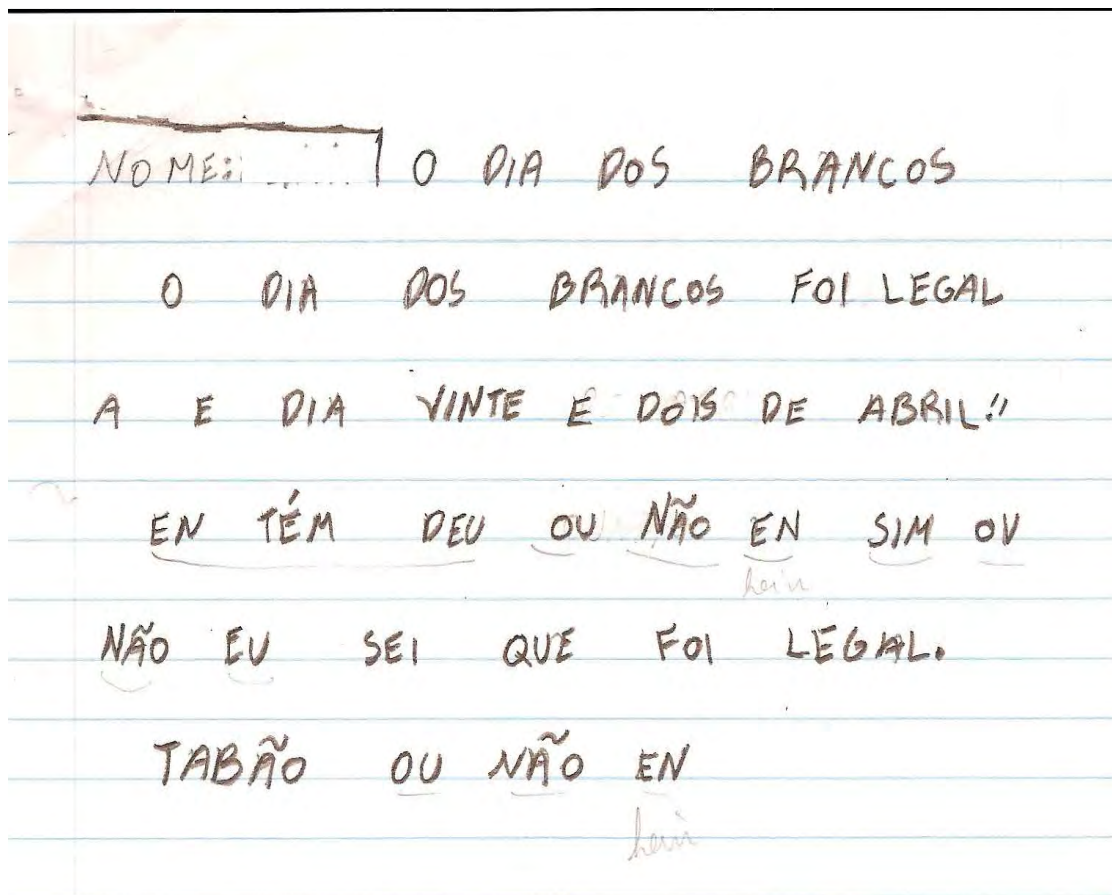 NOME: O DIA DOS BRANCOS
O DIA DOS BRANCOS FOI LEGAL
A E DIA VINTE E DOIS DE ABRIL!!
EN TÉM DEU OU NÃO EN SIM OU
hein
NÃO EU SEI QUE FOI LEGAL.
TABÃO OU NÃO EN
hein